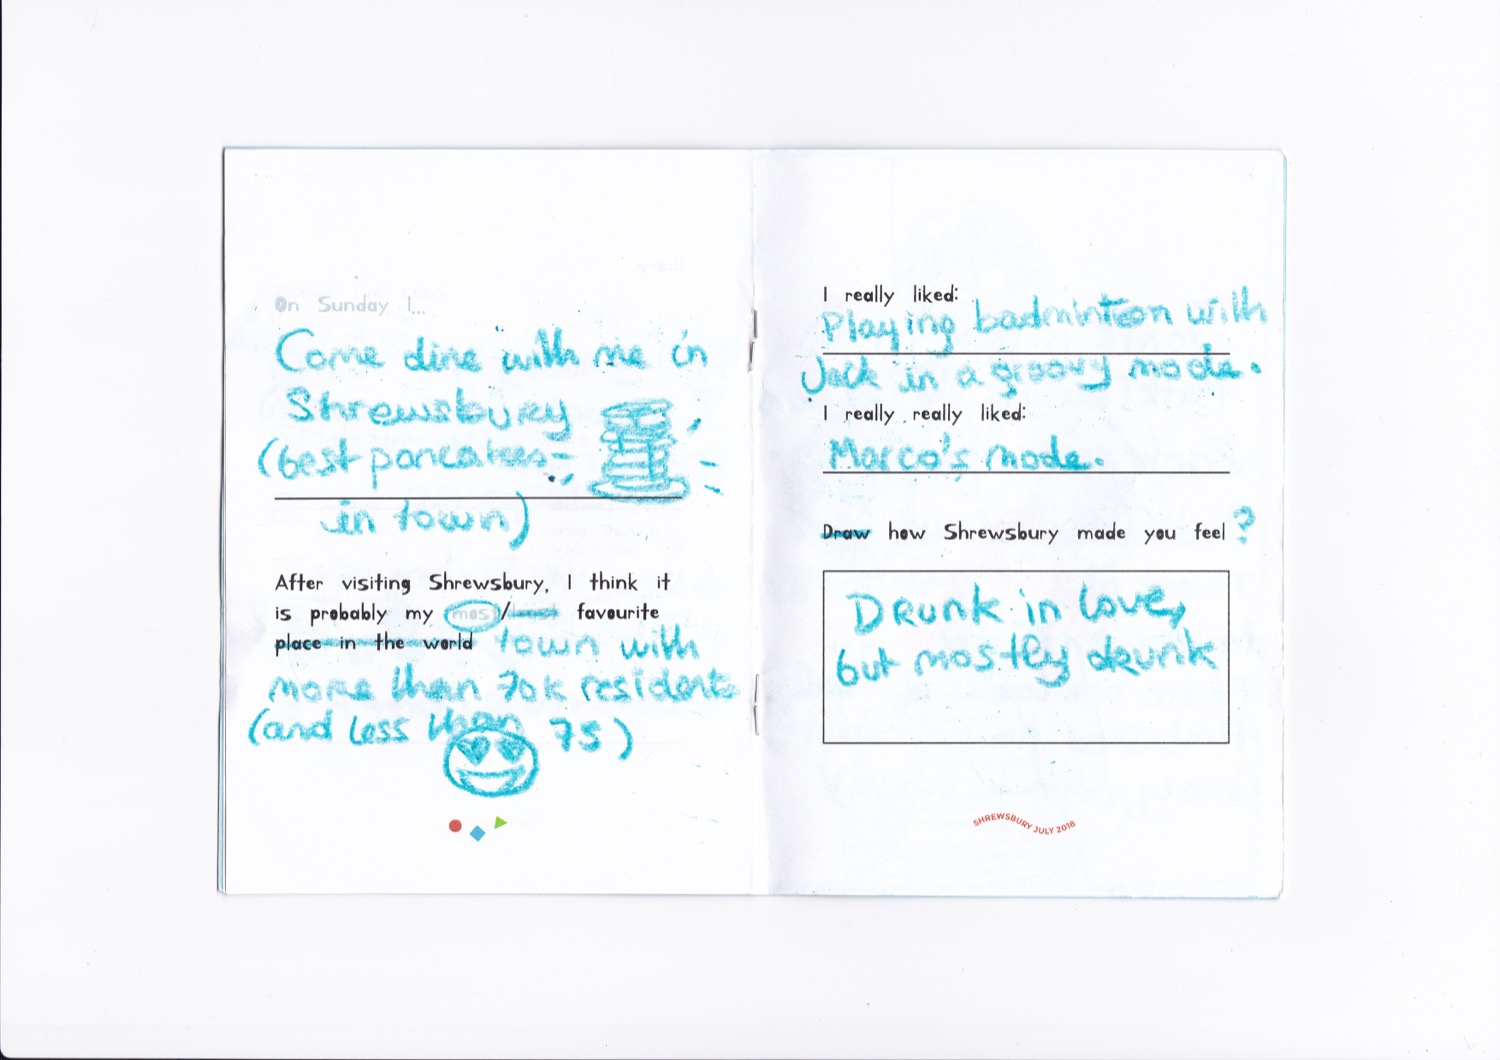 On Sunday I...
Come dine with me in
Shrewsbury
(best pancakes
in town)
After visiting Shrewsbury, I think it
is probably my most/least favourite
place in the world town with
more than 70k residents
(and less than 75)
I really liked:
Playing badminton with
Jack in a groovy mode.
I really really liked:
Marco's mode.
Draw how Shrewsbury made you feel?
Drunk in love,
but mostly drunk
SHREWSBURY JULY 2016